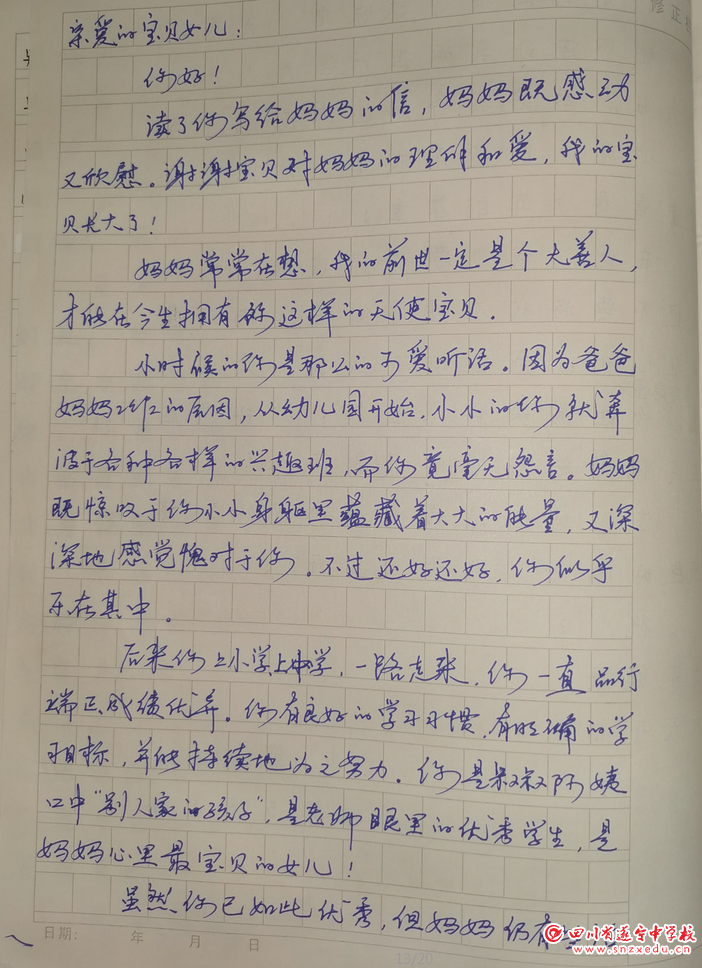 亲爱的宝贝女儿：
你好！
读了你写给妈妈的信，妈妈既感动
又欣慰。谢谢宝贝对妈妈的理解和爱，我的宝
贝长大了！
妈妈常常在想，我的前世一定是个大善人，
才能在今生拥有你这样的天使宝贝。
小时候的你是那么的可爱听话。因为爸爸
妈妈工作的原因，从幼儿园开始，小小的你就奔
波于各种各样的兴趣班，而你竟毫无怨言。妈妈
既惊叹于你小小身躯里蕴藏着大大的能量，又深
深地感觉愧对于你。不过还好还好，你似乎
乐在其中。
后来你上小学上中学，一路走来，你一直品行
端正成绩优异。你有良好的学习习惯，有明确的学
习目标，并能持续地为之努力。你是叔叔阿姨
口中“别人家的孩子”，是老师眼里的优秀学生，是
妈妈心里最宝贝的女儿！
虽然你已如此优秀，但妈妈仍有
日期： 年 月 日
13/20
四川省遂宁中学校
www.snzxedu.com
修正